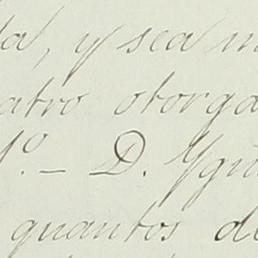 da, y sea
atro otorga
1º. — D. Ygn
quantos de